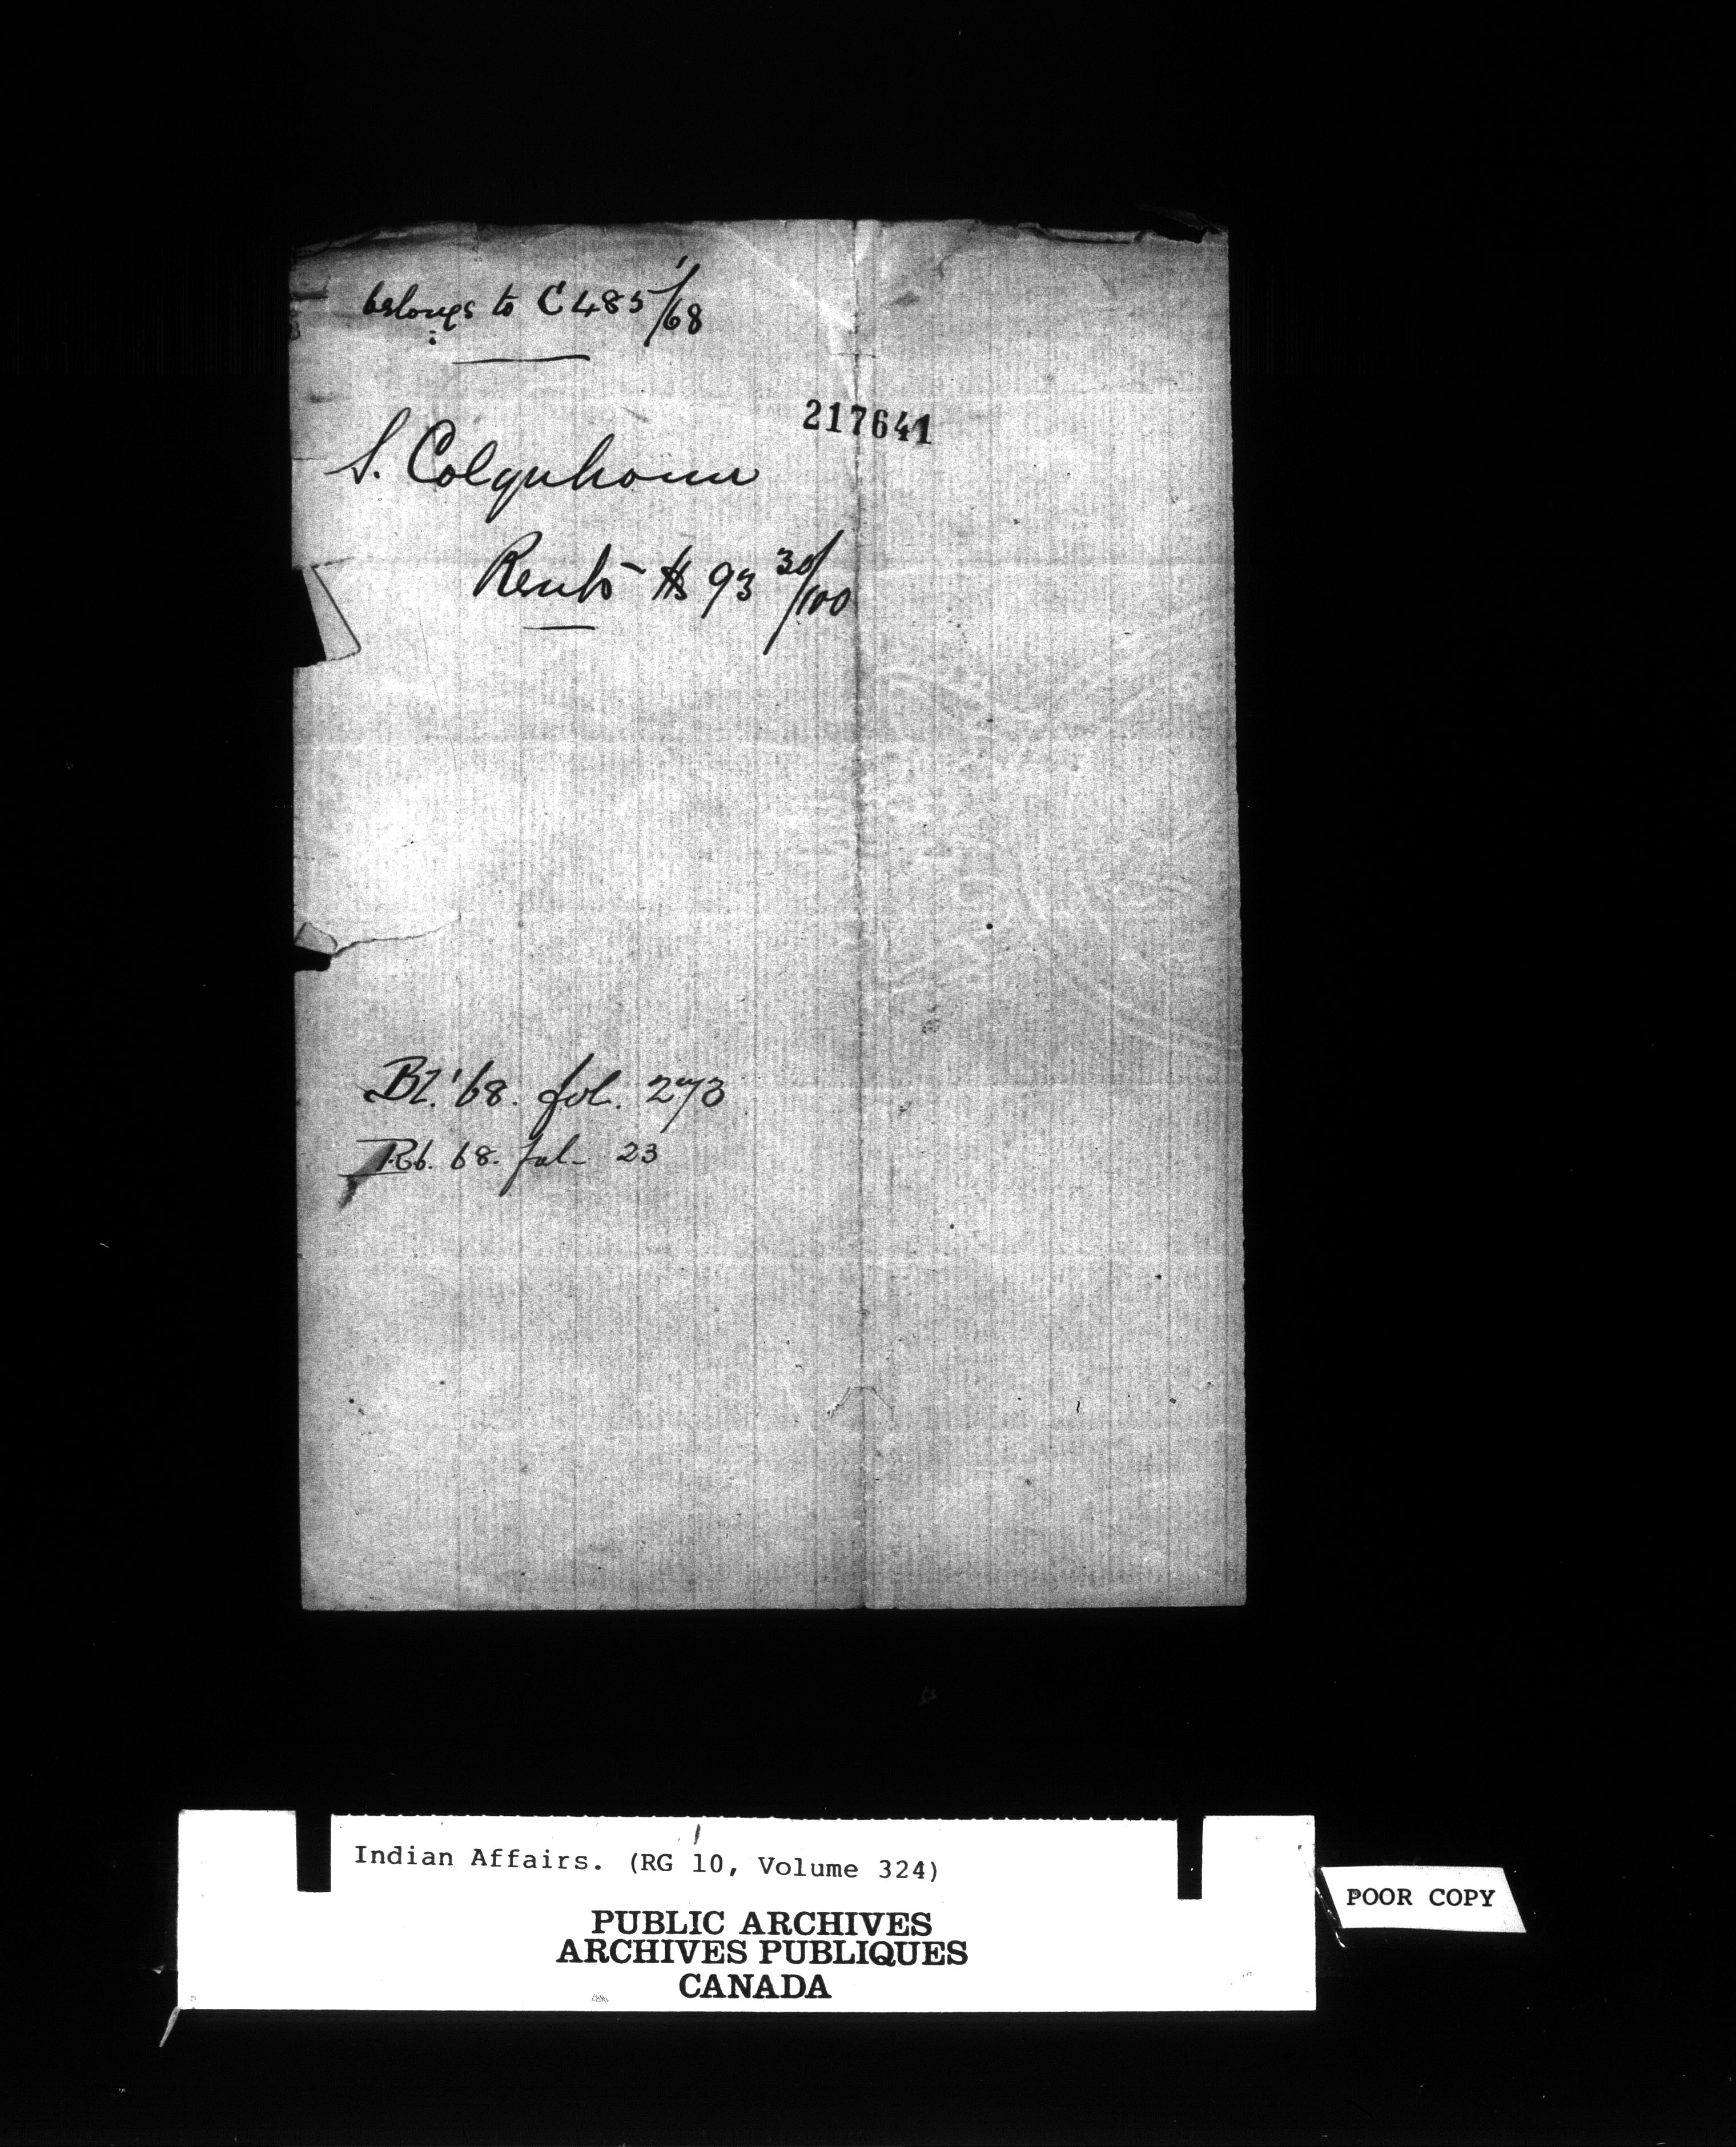 belongs to C 485/68
217641
S. Colquhoun
Rents $ 93 30/100
Bl. '68. fol. 273
Rb. 68. fol. 23
Indian Affairs. (RG 10, Volume 324)
PUBLIC ARCHIVES
ARCHIVES PUBLIQUES
CANADA
POOR COPY